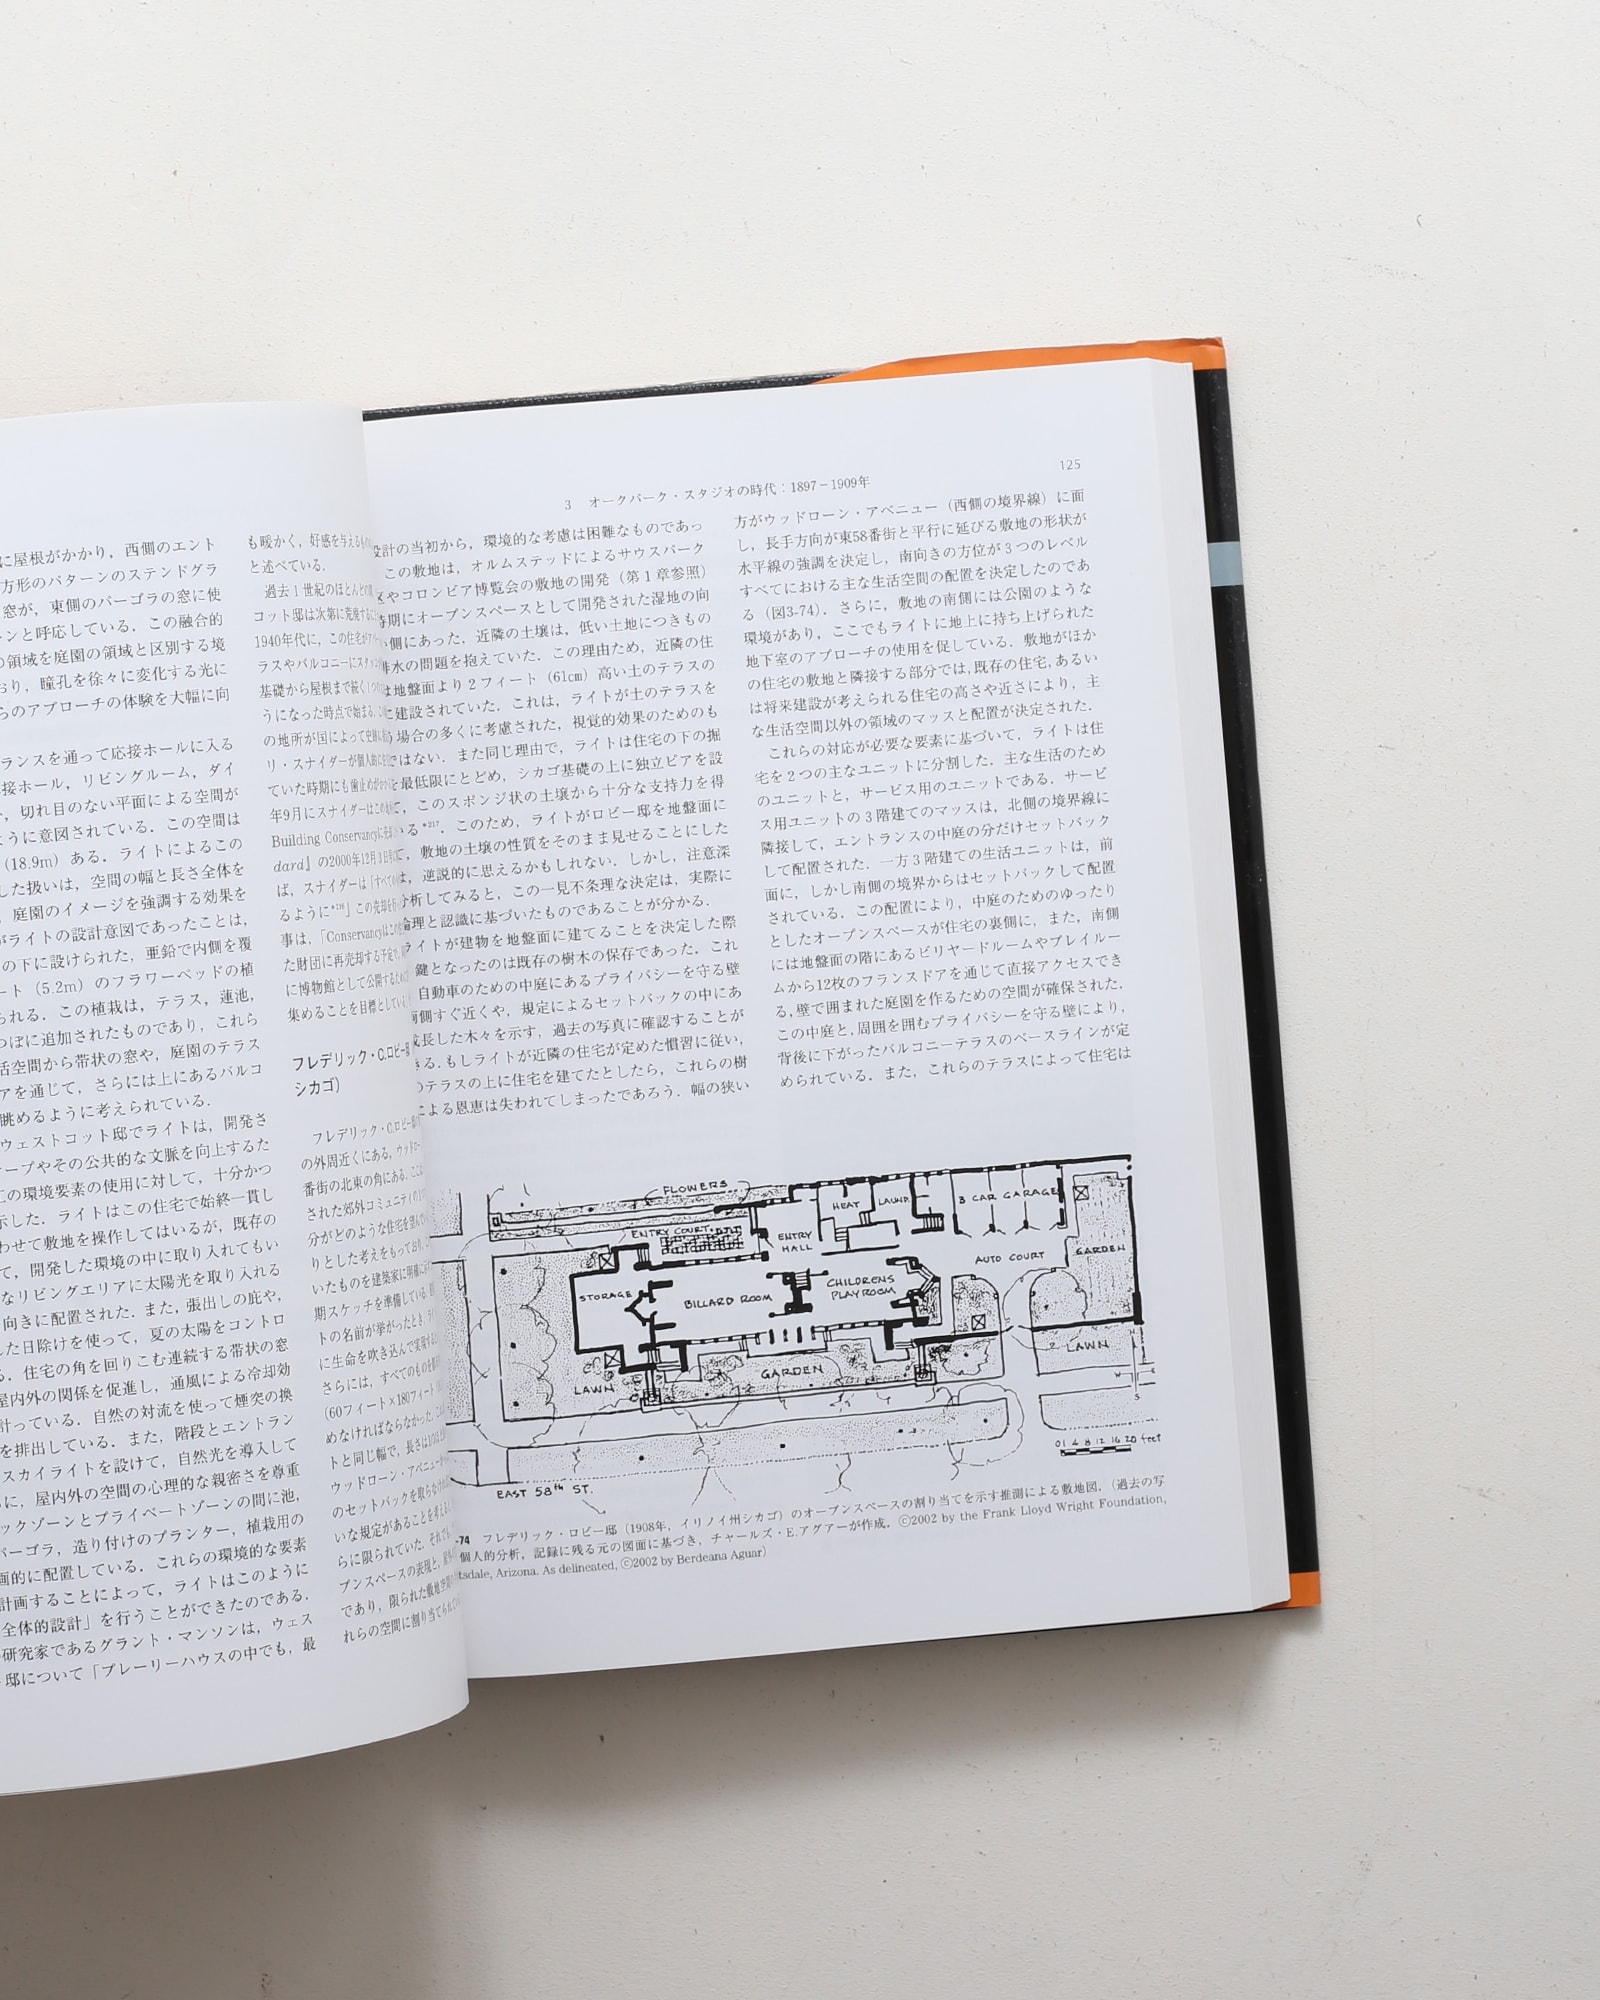 に屋根がかかり，西側のエント
方形のパターンのステンドグラ
窓が，東側のパーゴラの窓に使
ンと呼応している．この融合的
の領域を庭園の領域と区別する境
おり，瞳孔を徐々に変化する光に
らのアプローチの体験を大幅に向
ランスを通って応接ホールに入る
接ホール，リビングルーム，ダイ
，切れ目のない平面による空間が
ように意図されている．この空間は
（18.9m）ある．ライトによるこの
した扱いは，空間の幅と長さ全体を
，庭園のイメージを強調する効果を
がライトの設計意図であったことは，
の下に設けられた，亜鉛で内側を覆
ート（5.2m）のフラワーベッドの植
られる．この植栽は，テラス，蓮池，
つぼに追加されたものであり，これら
活空間から帯状の窓や，庭園のテラス
アを通じて，さらには上にあるバルコ
眺めるように考えられている．
ウェストコット邸でライトは，開発さ
ープやその公共的な文脈を向上するた
の環境要素の使用に対して，十分かつ
示した．ライトはこの住宅で始終一貫し
わせて敷地を操作してはいるが，既存の
て，開発した環境の中に取り入れてもい
なリビングエリアに太陽光を取り入れる
向きに配置された．また，張出しの庇や，
した日除けを使って，夏の太陽をコントロ
る．住宅の角を回りこむ連続する帯状の窓
屋内外の関係を促進し，通風による冷却効
計っている．自然の対流を使って煙突の換
を排出している．また，階段とエントラン
スカイライトを設けて，自然光を導入して
に，屋内外の空間の心理的な親密さを尊重
ックゾーンとプライベートゾーンの間に池，
パーゴラ，造り付けのプランター，植栽用の
画的に配置している．これらの環境的な要素
計画することによって，ライトはこのように
全体的設計」を行うことができたのである．
研究家であるグラント・マンソンは，ウェス
邸について「プレーリーハウスの中でも，最
も暖かく，好感を与える
と述べている．
過去1世紀のほとんどの
コット邸は次第に荒廃する
1940年代に，この住宅が
ラスやバルコニーに
基礎から屋根まで続く
うになった時点で始まる．
の地所が国によって
リ・スナイダーが個人的に
ていた時期にも歯止めが
年9月にスナイダーはこの
Building Conservancyに
dard』の2000年12月3日
ば，スナイダーは「すべての
るように*216」この売却を
事は，「Conservancyはこの
た財団に再売却する予定で，
に博物館として公開するため
集めることを目標としている
フレデリック・C.ロビー邸
シカゴ）
フレデリック・C.ロビー邸
の外周近くにある，ウッドロー
番街の北東の角にある．
された郊外コミュニティの
分がどのような住宅を望んで
りとした考えをもっており，
いたものを建築家に明確に
期スケッチを準備している．
トの名前が挙がったとき，ライ
に生命を吹き込んで実現する
さらには，すべてのものを
（60フィート×180フィート
めなければならなかった．
トと同じ幅で，長さは
ウッドローン・アベニュー
のセットバックを取らなければ
いな規定があることを考える
らに限られていた．それでも，
プンスペースの表現と，
であり，限られた敷地空間
れらの空間に割り当てられて
3　オークパーク・スタジオの時代：1897－1909年
125
設計の当初から，環境的な考慮は困難なものであっ
この敷地は，オルムステッドによるサウスパーク
区やコロンビア博覧会の敷地の開発（第1章参照）
時期にオープンスペースとして開発された湿地の向
い側にあった．近隣の土壌は，低い土地につきもの
排水の問題を抱えていた．この理由ため，近隣の住
は地盤面より2フィート（61cm）高い土のテラスの
に建設されていた．これは，ライトが土のテラスを
う場合の多くに考慮された，視覚的効果のためのも
ではない．また同じ理由で，ライトは住宅の下の掘
を最低限にとどめ，シカゴ基礎の上に独立ピアを設
て，このスポンジ状の土壌から十分な支持力を得
いる*217．このため，ライトがロビー邸を地盤面に
て，敷地の土壌の性質をそのまま見せることにした
は，逆説的に思えるかもしれない．しかし，注意深
分析してみると，この一見不条理な決定は，実際に
倫理と認識に基づいたものであることが分かる．
ライトが建物を地盤面に建てることを決定した際
鍵となったのは既存の樹木の保存であった．これ
自動車のための中庭にあるプライバシーを守る壁
両側すぐ近くや，規定によるセットバックの中にあ
成長した木々を示す，過去の写真に確認することが
きる．もしライトが近隣の住宅が定めた慣習に従い，
のテラスの上に住宅を建てたとしたら，これらの樹
による恩恵は失われてしまったであろう．幅の狭い
方がウッドローン・アベニュー（西側の境界線）に面
し，長手方向が東58番街と平行に延びる敷地の形状が
水平線の強調を決定し，南向きの方位が3つのレベル
すべてにおける主な生活空間の配置を決定したのであ
る（図3-74）．さらに，敷地の南側には公園のような
環境があり，ここでもライトに地上に持ち上げられた
地下室のアプローチの使用を促している．敷地がほか
の住宅の敷地と隣接する部分では，既存の住宅，あるい
は将来建設が考えられる住宅の高さや近さにより，主
な生活空間以外の領域のマッスと配置が決定された．
これらの対応が必要な要素に基づいて，ライトは住
宅を2つの主なユニットに分割した．主な生活のため
のユニットと，サービス用のユニットである．サービ
ス用ユニットの3階建てのマッスは，北側の境界線に
隣接して，エントランスの中庭の分だけセットバック
して配置された．一方3階建ての生活ユニットは，前
面に，しかし南側の境界からはセットバックして配置
されている．この配置により，中庭のためのゆったり
としたオープンスペースが住宅の裏側に，また，南側
には地盤面の階にあるビリヤードルームやプレイルー
ムから12枚のフランスドアを通じて直接アクセスでき
る，壁で囲まれた庭園を作るための空間が確保された．
この中庭と，周囲を囲むプライバシーを守る壁により，
背後に下がったバルコニーテラスのベースラインが定
められている．また，これらのテラスによって住宅は
FLOWERS
ENTRY COURT
ENTRY HALL
HEAT
LAUND.
3 CAR GARAGE
AUTO COURT
GARDEN
STORAGE
BILLARD ROOM
CHILDRENS PLAYROOM
LAWN
GARDEN
LAWN
W
E
S
0 1 4 8 12 16 20 feet
EAST 58th ST.
-74　フレデリック・ロビー邸（1908年，イリノイ州シカゴ）のオープンスペースの割り当てを示す推測による敷地図．（過去の写
個人的分析，記録に残る元の図面に基づき，チャールズ・E.アグアーが作成．©2002 by the Frank Lloyd Wright Foundation,
tsdale, Arizona. As delineated, ©2002 by Berdeana Aguar）